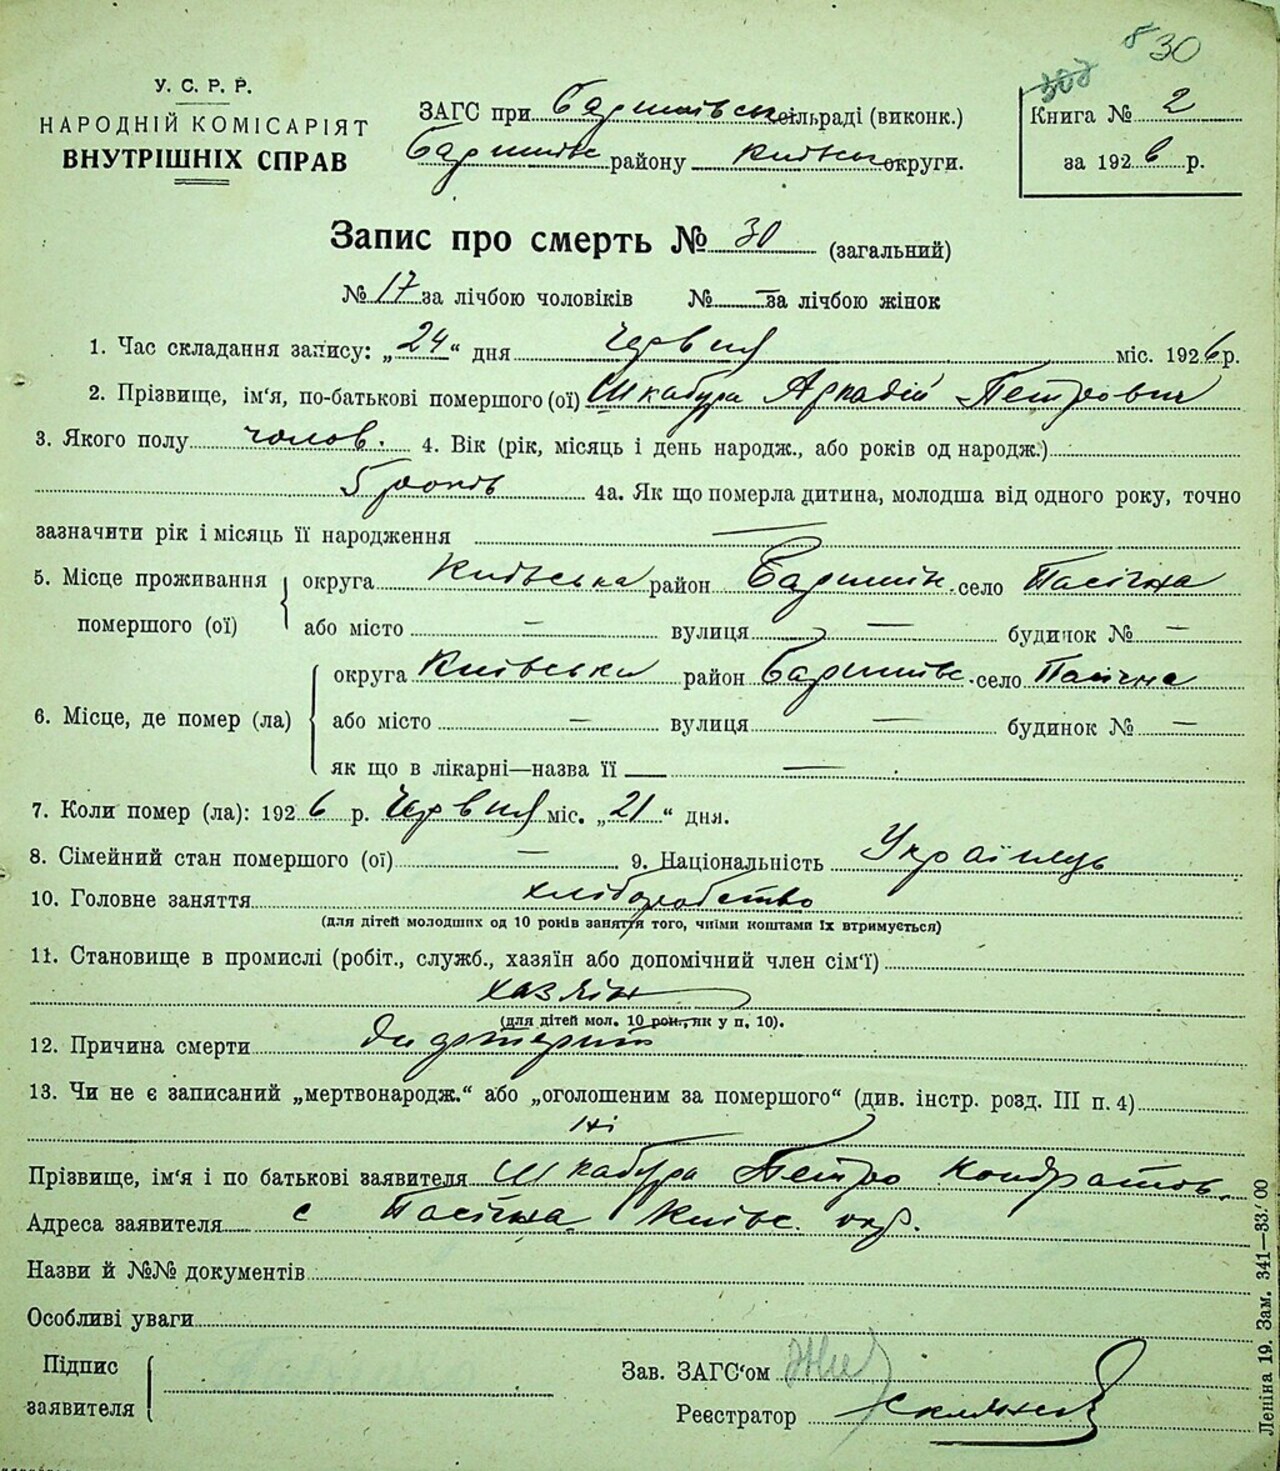 30
У. С. Р. Р.
НАРОДНІЙ КОМІСАРІЯТ
ВНУТРІШНІХ СПРАВ
ЗАГС при Баришівськ сільраді (виконк.)
Баришівс району Київськ округи.
Книга № 2
за 1926 р.
Запис про смерть № 30 (загальний)
№ 17 за лічбою чоловіків № — за лічбою жінок
1. Час складання запису: „24“ дня Червня міс. 1926 р.
2. Прізвище, ім'я, по-батькові помершого (ої) Шкабура Аркадій Петрович
3. Якого полу чолов. 4. Вік (рік, місяць і день народж., або років од народж.)
5 років 4а. Як що померла дитина, молодша від одного року, точно
зазначити рік і місяць її народження —
5. Місце проживання помершого (ої) округа Київська район Баришів. село Пасічна
або місто — вулиця — будинок № —
6. Місце, де помер (ла) округа Київська район Баришівс. село Пасічна
або місто — вулиця — будинок № —
як що в лікарні—назва її —
7. Коли помер (ла): 1926 р. Червня міс. „21“ дня.
8. Сімейний стан помершого (ої) — 9. Національність Українець
10. Головне заняття хліборобство
(для дітей молодших од 10 років заняття того, чиїми коштами їх втримується)
11. Становище в промислі (робіт., служб., хазяїн або допомічний член сім'ї)
хазяїн
(для дітей мол. 10 рок., як у п. 10).
12. Причина смерти Дифтерит
13. Чи не є записаний „мертвонародж.“ або „оголошеним за помершого“ (див. інстр. розд. III п. 4)
ні
Прізвище, ім'я і по батькові заявителя Шкабура Петро Кондратов.
Адреса заявителя с Пасічна Київс. окр.
Назви й №№ документів
Особливі уваги
Підпис заявителя
Зав. ЗАГС'ом
Реєстратор
Леніна 19. Зам. 341—33.000